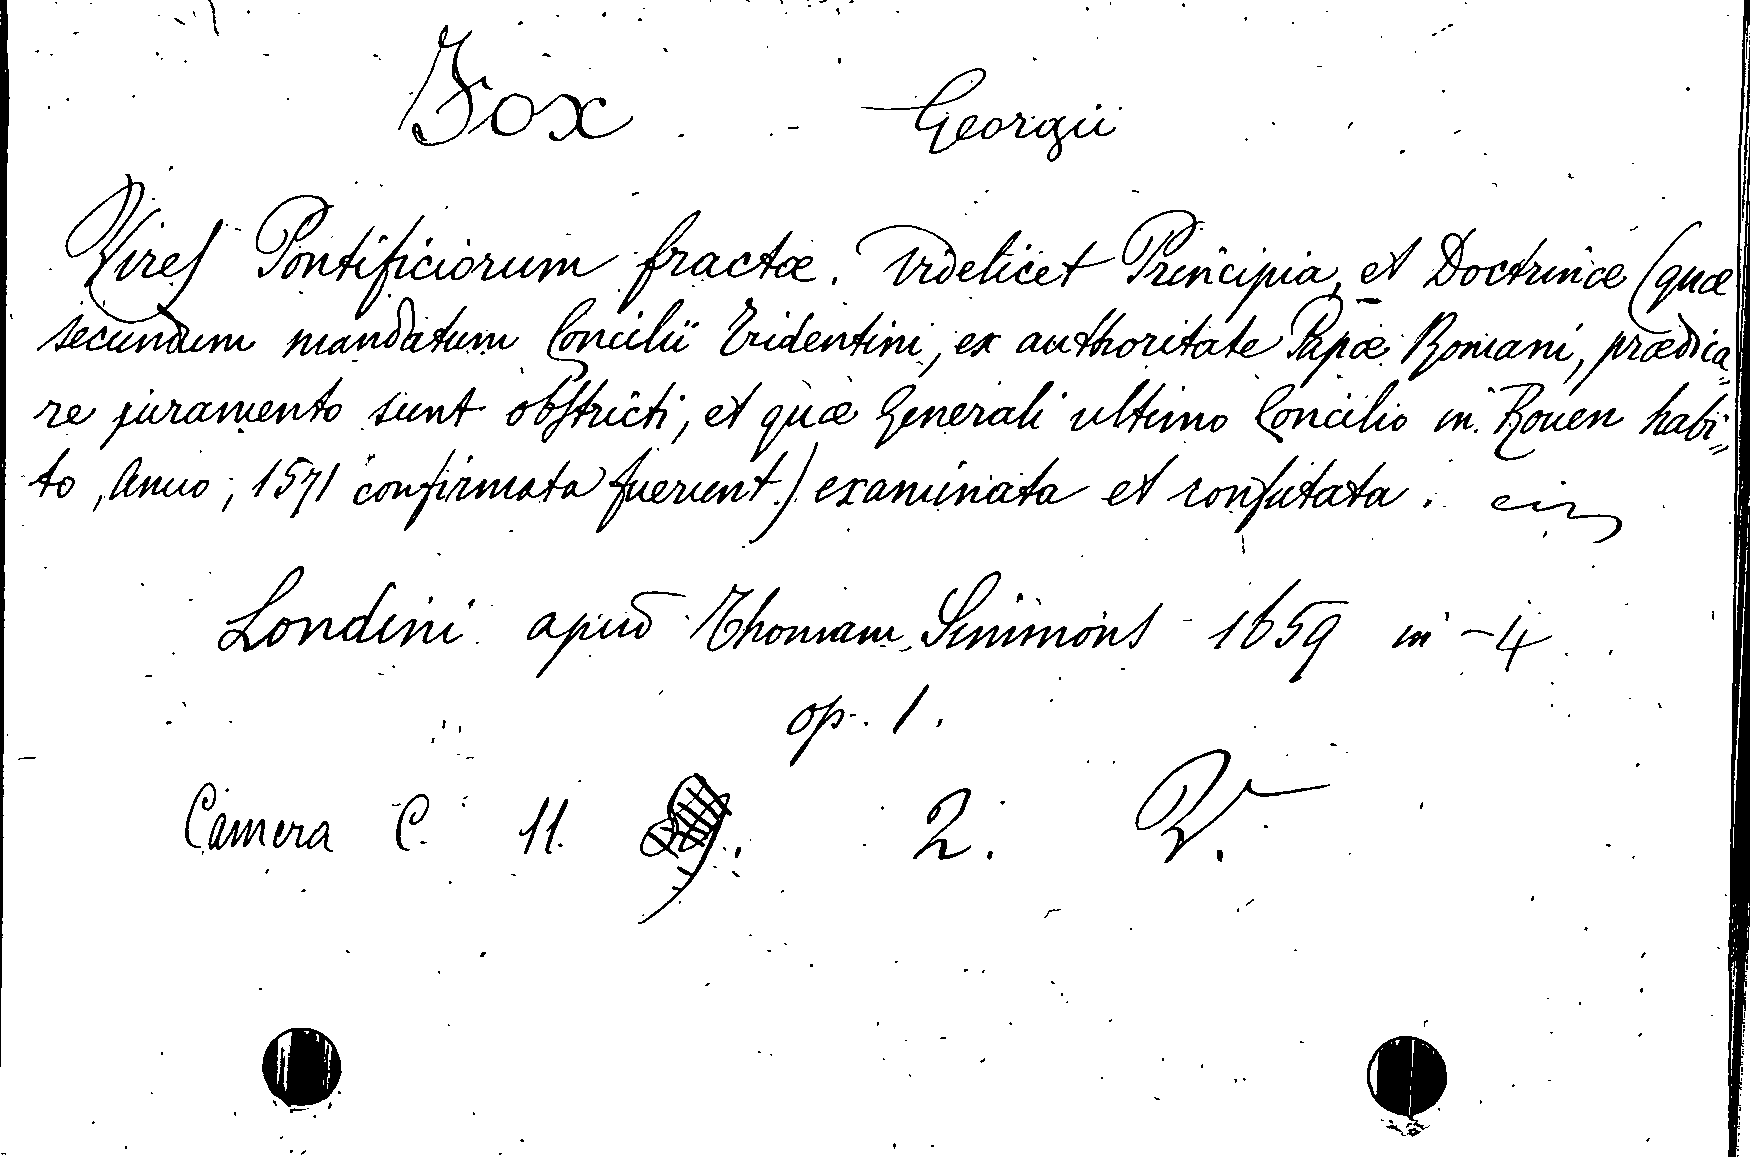 Fox - Georgii
Vires Pontificiorum fractæ. Videlicet Principia, et Doctrinæ (quæ
secundum mandatum Concilii Tridentini, ex authoritate Papæ Romani, prædica„
re juramento sunt obstricti, et quæ Generali ultimo Concilio in Rouen habi„
to, Anno, 1571 confirmata fuerunt.) examinata et confutata.
Londini apud Thomam Simmons - 1659 in - 4
op. 1.
Camera C. 11. 2. V.